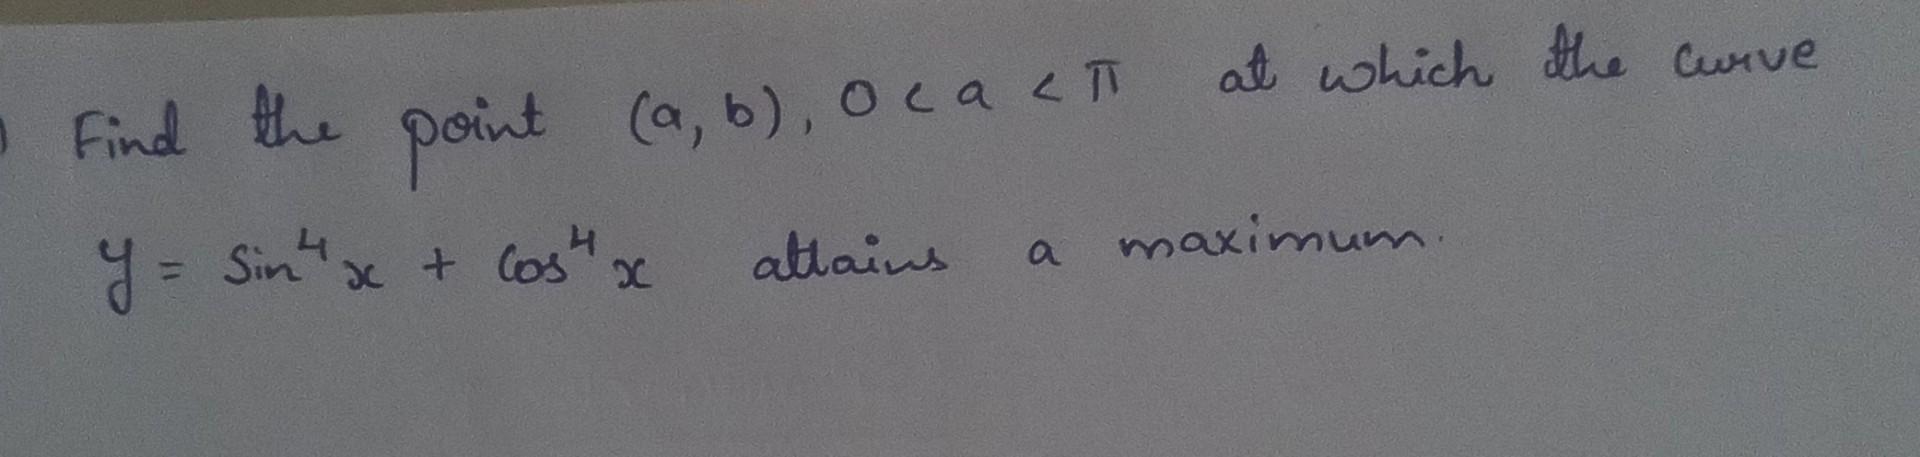 ) Find the point (a, b), 0 < a < π at which the curve
y = sin⁴x + cos⁴x attains a maximum.